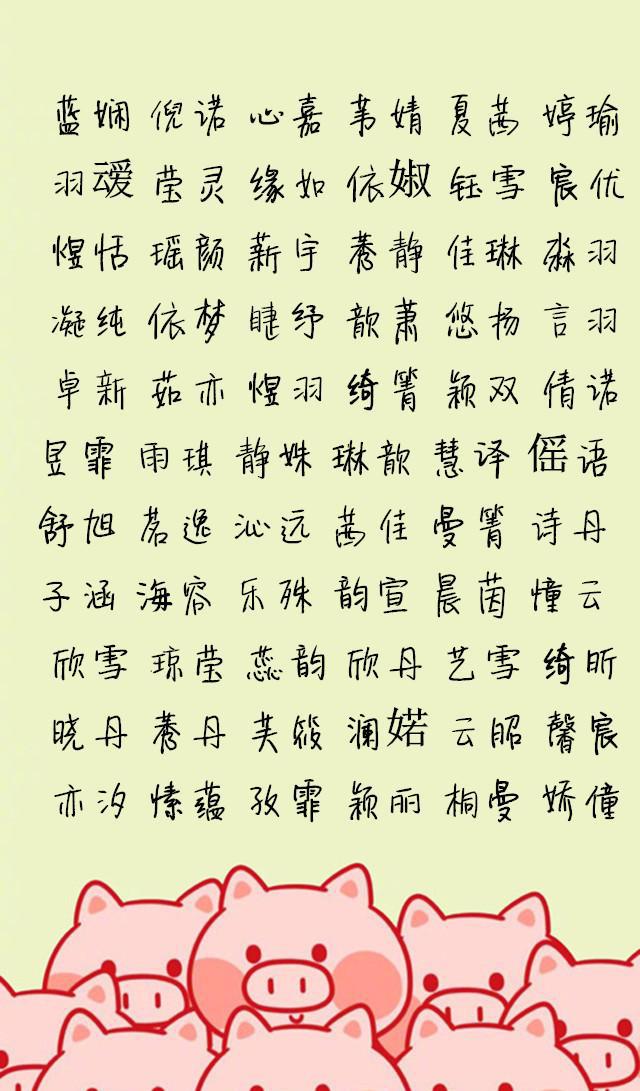 蓝娴 倪诺 心嘉 苇婧 夏茜 婷瑜
羽叆 莹灵 缘如 依婌 钰雪 宸优
煜恬 瑶颜 薪宇 莠静 佳琳 淼羽
凝纯 依梦 睫纾 歆萧 悠扬 言羽
卓新 茹亦 煜羽 绮箐 颖双 倩诺
昱霏 雨琪 静姝 琳歆 慧译 傜语
舒旭 茗逸 沁远 茜佳 曼箐 诗丹
子涵 海容 乐殊 韵宣 晨茵 憧云
欣雪 琼莹 蕊韵 欣丹 艺雪 绮昕
晓丹 莠丹 芙筱 澜婼 云昭 馨宸
亦汐 愫蕴 孜霏 颖丽 桐曼 娇僮